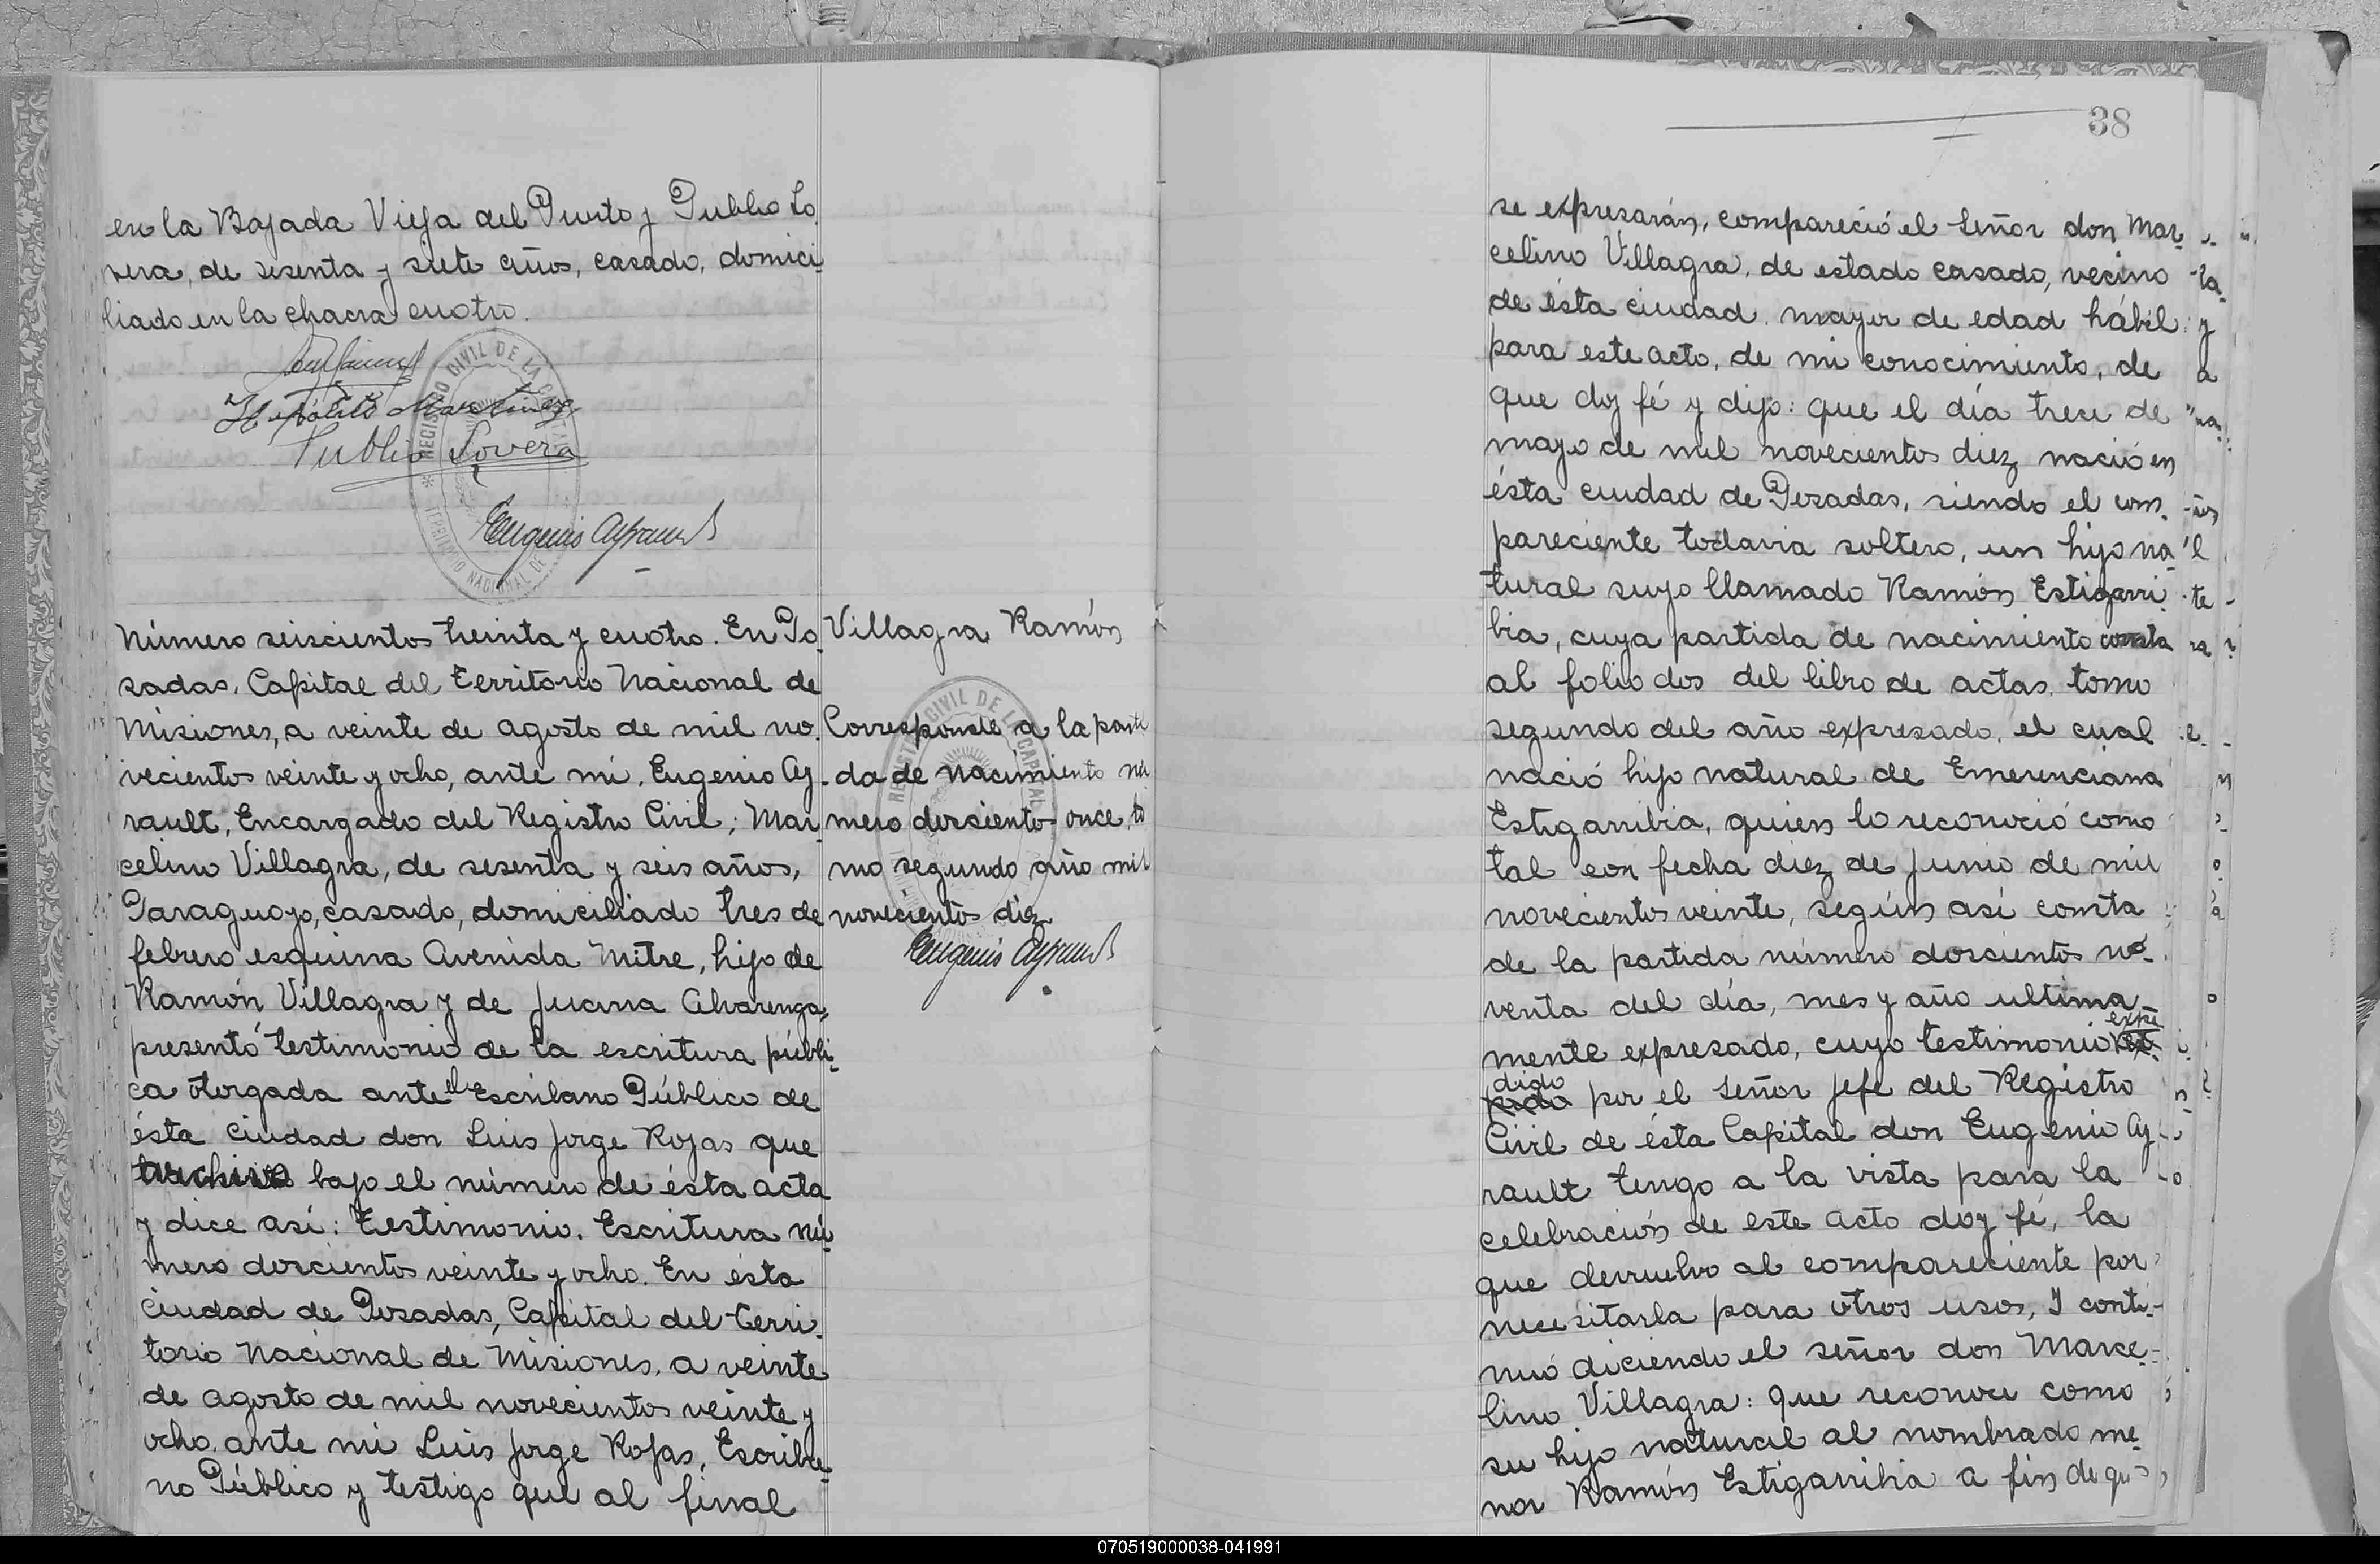 en la Bajada Vieja del Puerto y Publio Lo
vera, de sesenta y siete años, casado, domici
liado en la chacra cuatro.
Hipólito Martinez
Publio Lovera
REGISTRO CIVIL DE LA CAPITAL
TERRITORIO NACIONAL DE
Eugenio Ayrault
Número seiscientos treinta y cuatro. En Po
sadas, Capital del Territorio Nacional de
Misiones, a veinte de agosto de mil no.
vecientos veinte y ocho, ante mi, Eugenio Ay
rault, Encargado del Registro Civil; Mar
celino Villagra, de sesenta y seis años,
Paraguayo, casado, domiciliado tres de
febrero esquina Avenida Mitre, hijo de
Ramón Villagra y de Alvarenga,
presentó testimonio de la escritura públi-
ca otorgada ante el Escribano Público de
ésta ciudad don Luis Jorge Rojas que
archivo bajo el número de ésta acta
y dice así: Testimonio. Escritura nú
mero doscientos veinte y ocho. En ésta
ciudad de Posadas, Capital del Terri.
torio Nacional de Misiones, a veinte
de agosto de mil novecientos veinte y
ocho, ante mi Luis Jorge Rojas, Escriba-
no Público y testigo que al final
Villagra Ramón
REGISTRO CIVIL DE LA CAPITAL
Corresponde a la parti
da de nacimiento nú
mero dosciento once, to
mo segundo año mil
novecientos diez
Eugenio Ayrault
38
se expresarán, compareció el Señor don Mar
celino Villagra, de estado casado, vecino
de ésta ciudad, mayor de edad hábil
para este acto, de mi conocimiento, de
que doy fé y dijo: que el día trece de
mayo de mil novecientos diez nació en
ésta ciudad de Posadas, siendo el com.
pareciente todavia soltero, un hijo na
tural suyo llamado Ramón Estigarri
bia, cuya partida de nacimiento consta
al folio dos del libro de actas, tomo
segundo del año expresado, el cual
nació hijo natural de Emerenciana
Estigarribia, quien lo reconoció como
tal con fecha diez de Junio de mil
novecientos veinte, según así consta
de la partida número doscientos no-
venta del día, mes y año ultima_
mente expresado, cuyo testimonio expe
dido por el Señor Jefe del Registro
Civil de ésta Capital don Eugenio Ay-
rault tengo a la vista para la
celebración de este acto doy fé, la
que devuelvo al compareciente por
necesitarla para otros usos, Y conti-
nuó diciendo el señor don Marce-
lino Villagra: que reconoce como
su hijo natural al nombrado me_
nor Ramón Estigarribia a fin de que
070519000038-041991